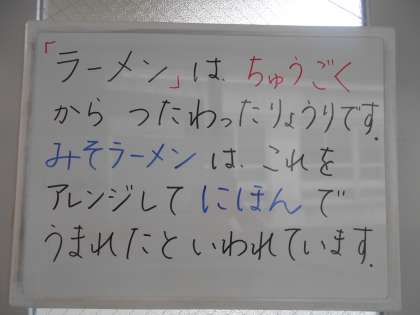 「ラーメン」は、ちゅうごく
から つたわったりょうりです.
みそラーメンは、これを
アレンジして にほんで
うまれたと いわれています.